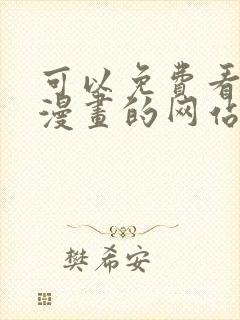 可以免费看
漫畫的网站
樊希安